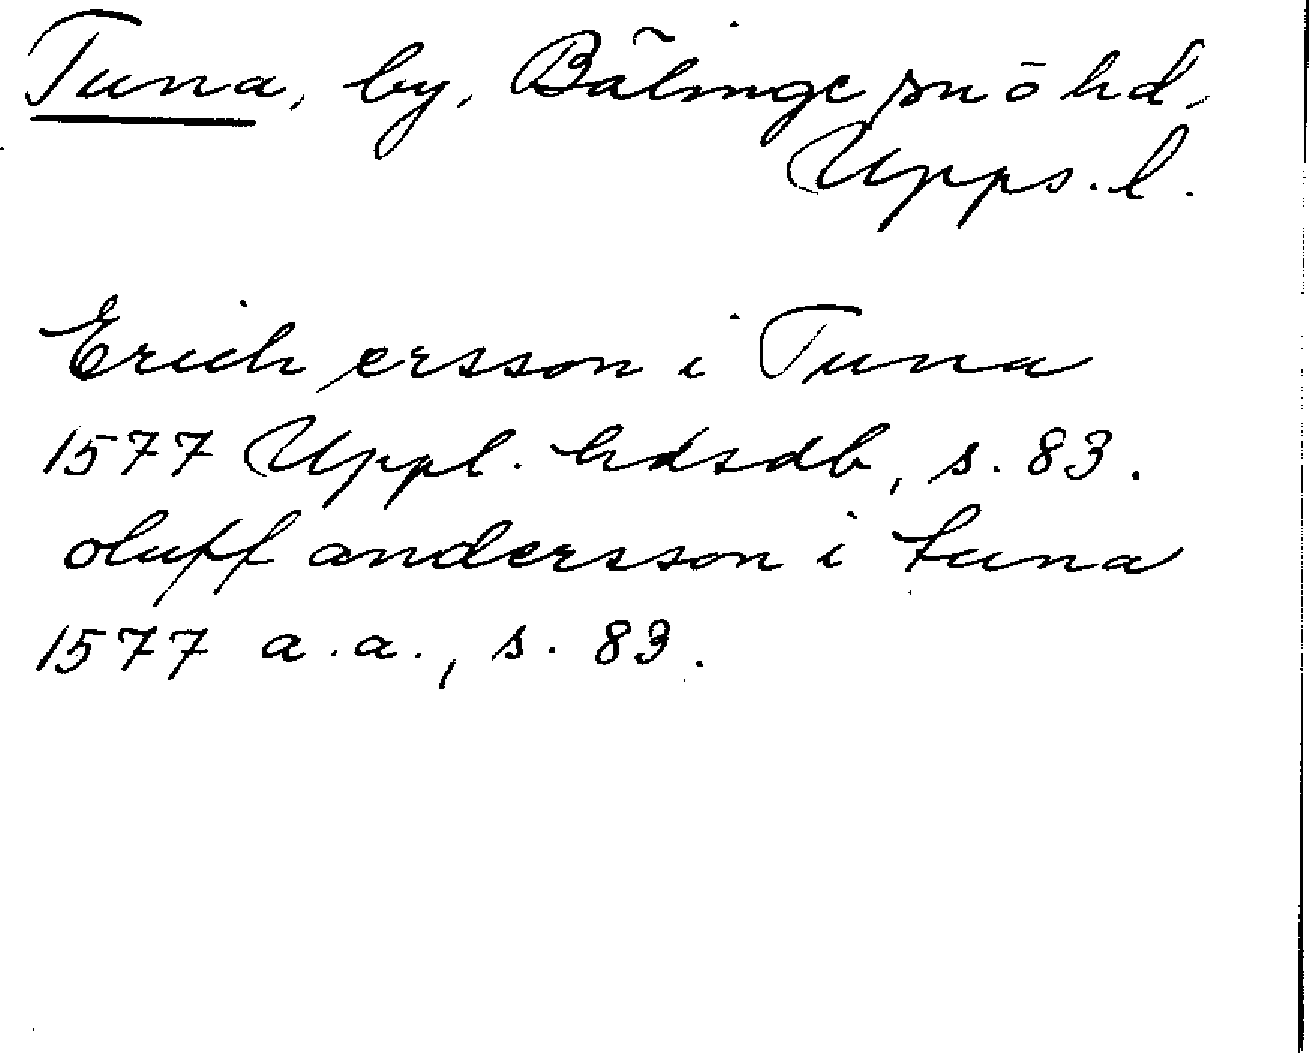 Tuna, by, Bälinge sn ō hd,
Upps. l.
Erich ersson i Tuna
1577 Uppl. hdsdb, s. 83.
oluff andersson i tuna
1577 a.a., s. 83.